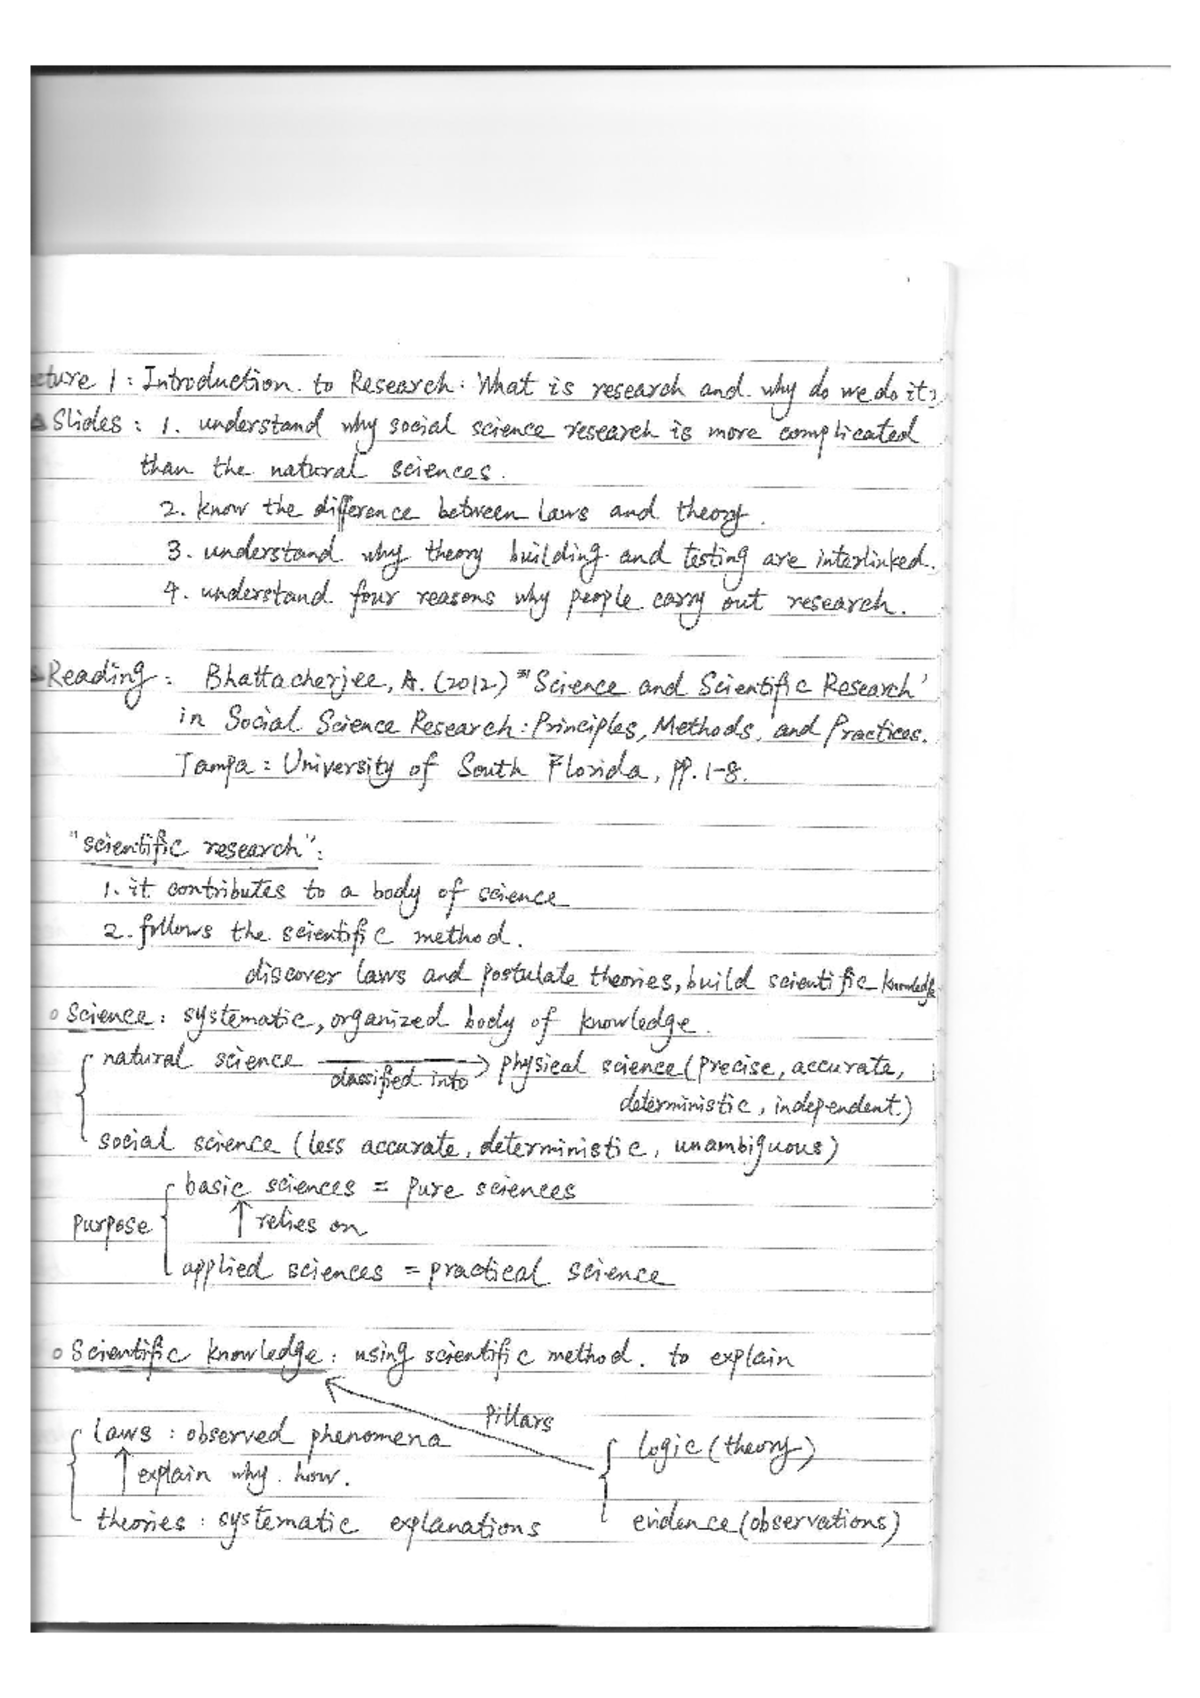 cture 1: Introduction to Research: What is research and why do we do it?
Slides: 1. understand why social science research is more complicated
than the natural sciences.
2. know the difference between laws and theory.
3. understand why theory building and testing are interlinked.
4. understand four reasons why people carry out research.
Reading: Bhattacherjee, A. (2012) "Science and Scientific Research'
in Social Science Research: Principles, Methods, and Practices.
Tampa: University of South Florida, pp. 1-8.
"scientific research":
1. it contributes to a body of science
2. follows the scientific method.
discover laws and postulate theories, build scientific knowledge
Science: systematic, organized body of knowledge.
natural science → physical science (precise, accurate,
classified into
deterministic, independent)
social science (less accurate, deterministic, unambiguous)
basic sciences = pure sciences
purpose ↑ relies on
applied sciences = practical science
Scientific knowledge: using scientific method. to explain
Pillars
laws: observed phenomena
logic (theory)
↑ explain why. how.
theories: systematic explanations
evidence (observations)